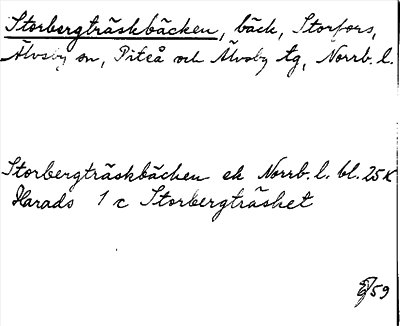 Storbergträskbäcken, bäck, Storfors,
Älvsby sn, Piteå och Älvsby tg, Norrb. l.
Storbergträskbäcken ek Norrb. l. bl. 25K
Harads 1 c Storbergträsket
59